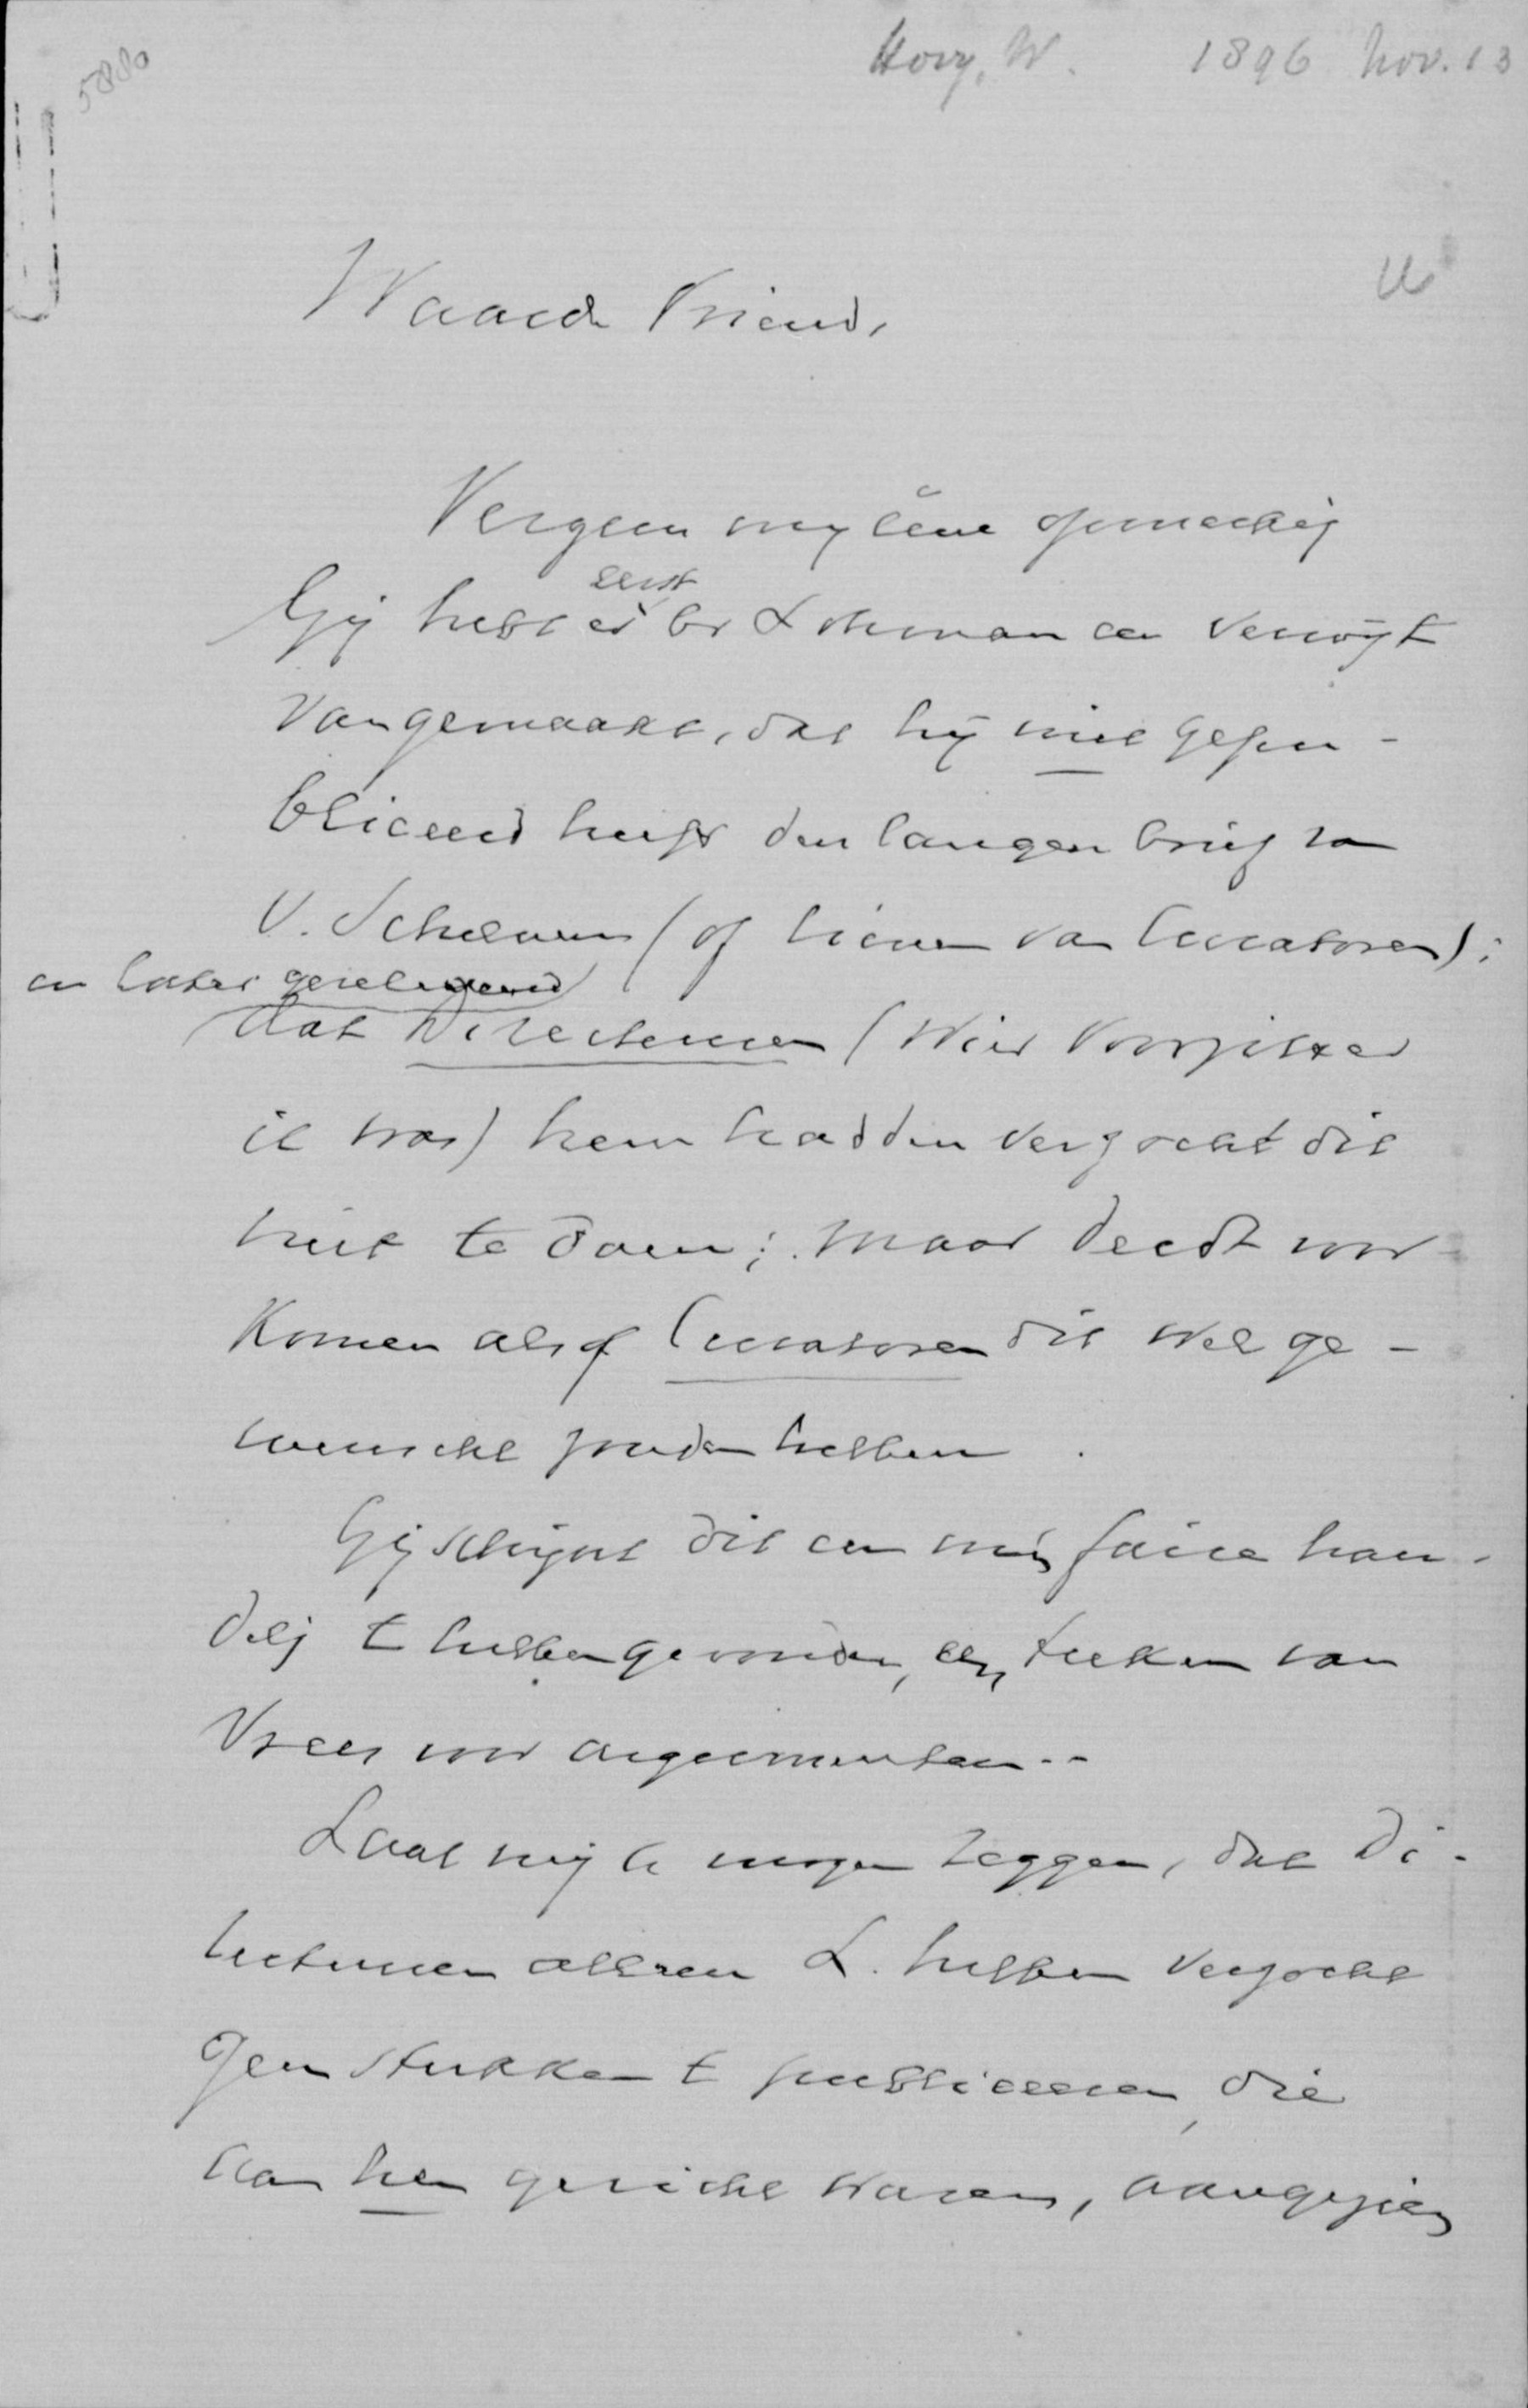 5880
Hovy, W. 1896 Nov. 13
Waarde Vriend,
Vergun mij ééne opmerking
Gij hebt er eerst br Lohman een verwijt
van gemaakt, dat hij niet gepu-
bliceerd heeft den langen brief van
V. Schelven (of liever van Curatoren);
en later gereleveerd
dat Directeuren (wier Voorzitter
ik was) hem hadden verzocht dit
niet te doen; maar deedt voor-
komen alsof Curatoren dit wel ge-
wenscht zouden hebben.
Gij schijnt dit een min faire han-
delg te hebben gevonden, een teeken van
vrees voor argumenten..
Laat mij U mogen zeggen, dat Di-
recteuren alleen L. hebben verzocht
geen stukken te publiceeren, die
aan hen gericht waren, aangezien